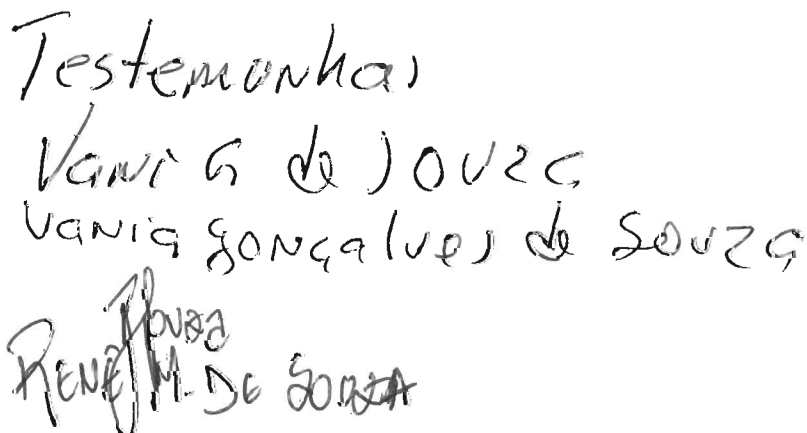 Testemunhas
Vania G de Souza
Vania Gonçalves de Souza
Souza
RENÊ M. DE SOUZA